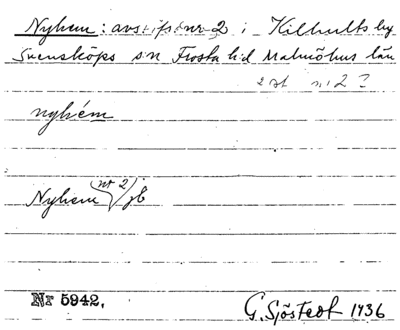 Nyhem: avs. tfr nr 2 i Kilhults by
Svensköps sn Frosta hd Malmöhus län
2 st nr 2?
nyhém
Nyhem nr 2/jb
Nr 5942.
G. Sjöstedt 1936